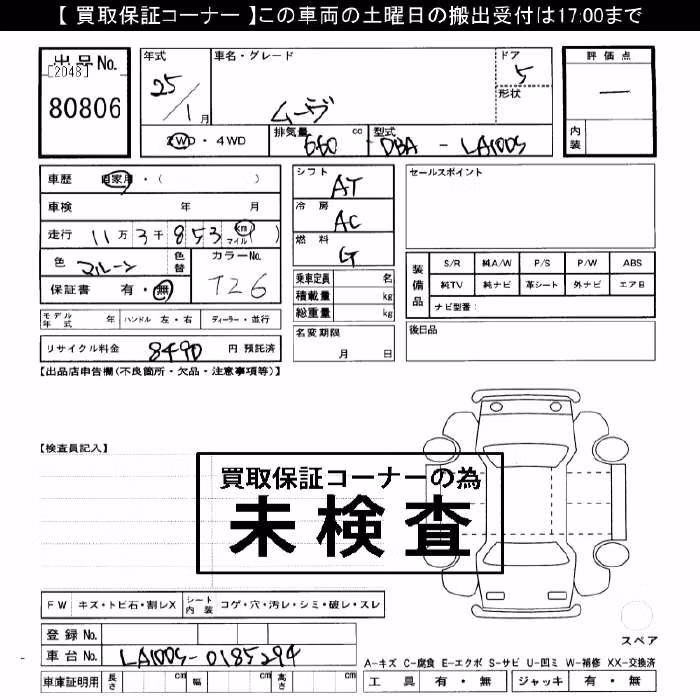 【 買取保証コーナー 】この車両の土曜日の搬出受付は17:00まで
出品No.
[2048]
80806
年式
25/1月
車名・グレード
ムーブ
ドア
5
形状
評価点
—
内装
2WD・4WD
排気量 660 cc
型式 DBA - LA100S
車歴 自家用・( )
車検 年 月
走行 11万3千853 km マイル ( )
色 マルーン
色替
カラーNo.
T26
保証書 有・無
モデル年式 年 ハンドル 左・右 ディーラー・並行
リサイクル料金 8490 円 預託済
シフト
AT
冷房
AC
燃料
G
乗車定員 名
積載量 kg
総重量 kg
名変期限
月 日
セールスポイント
装備品
S/R 純A/W P/S P/W ABS
純TV 純ナビ 革シート 外ナビ エアB
ナビ型番:
後日品
【出品店申告欄(不良箇所・欠品・注意事項等)】
【検査員記入】
買取保証コーナーの為
未検査
FW キズ・トビ石・割レX シート内装 コゲ・穴・汚レ・シミ・破レ・スレ
登録No.
車台No. LA100S-0185294
車庫証明用 長さ cm 幅 cm 高さ cm
スペア
A-キズ C-腐食 E-エクボ S-サビ U-凹ミ W-補修 XX-交換済
工具 有・無 ジャッキ 有・無